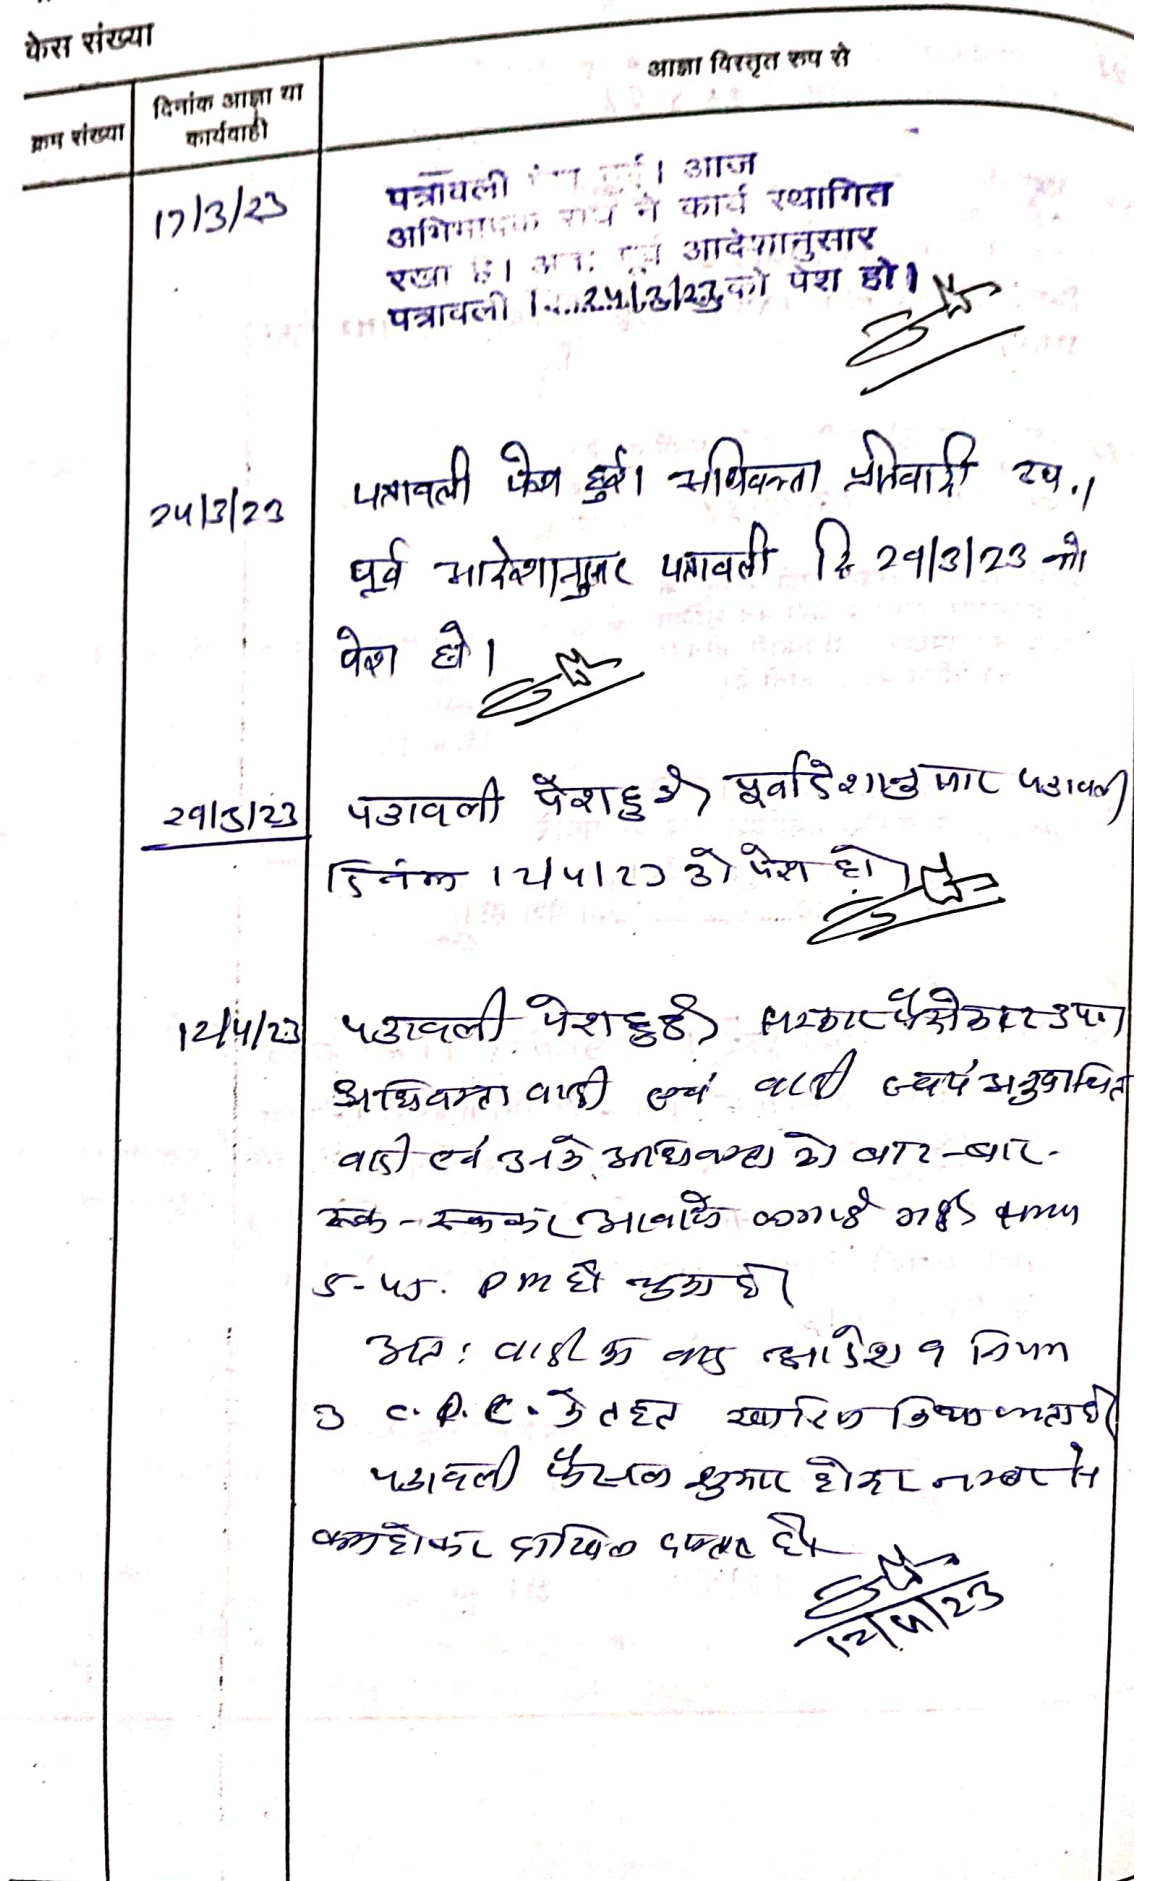 केस संख्या
आज्ञा विस्तृत रूप से
क्रम संख्या
दिनांक आज्ञा या
कार्यवाही
17/3/23
पत्रावली पेश हुई। आज
अभिभाषक संघ ने कार्य स्थागित
रखा है। अतः पूर्व आदेशानुसार
पत्रावली 24/3/23 को पेश हो।
24/3/23
पत्रावली पेश हुई। अधिवक्ता प्रतिवादी उप.।
पूर्व आदेशानुसार पत्रावली दि 29/3/23 को
पेश हो।
29/3/23
पत्रावली पेश हुई पूर्वादेशानुसार पत्रावली
दिनांक 12/4/23 को पेश हो
12/4/23
पत्रावली पेश हुई। सरकार पैरोकार उप।
अधिवक्ता वादी एवं वादी स्वयं अनुपस्थित
वादी एवं उनके अधिवक्ता को बार-बार-
रूक-रूककर आवाजे लगाई गई समय
5-45. PM हो चुका है।
अतः वादी का वाद आदेश 9 नियम
3 C.P.C. के तहत खारिज किया जाता है।
पत्रावली फैसल शुमार होकर नम्बर से
कम होकर दाखिल दफ्तर हो।
12/4/23